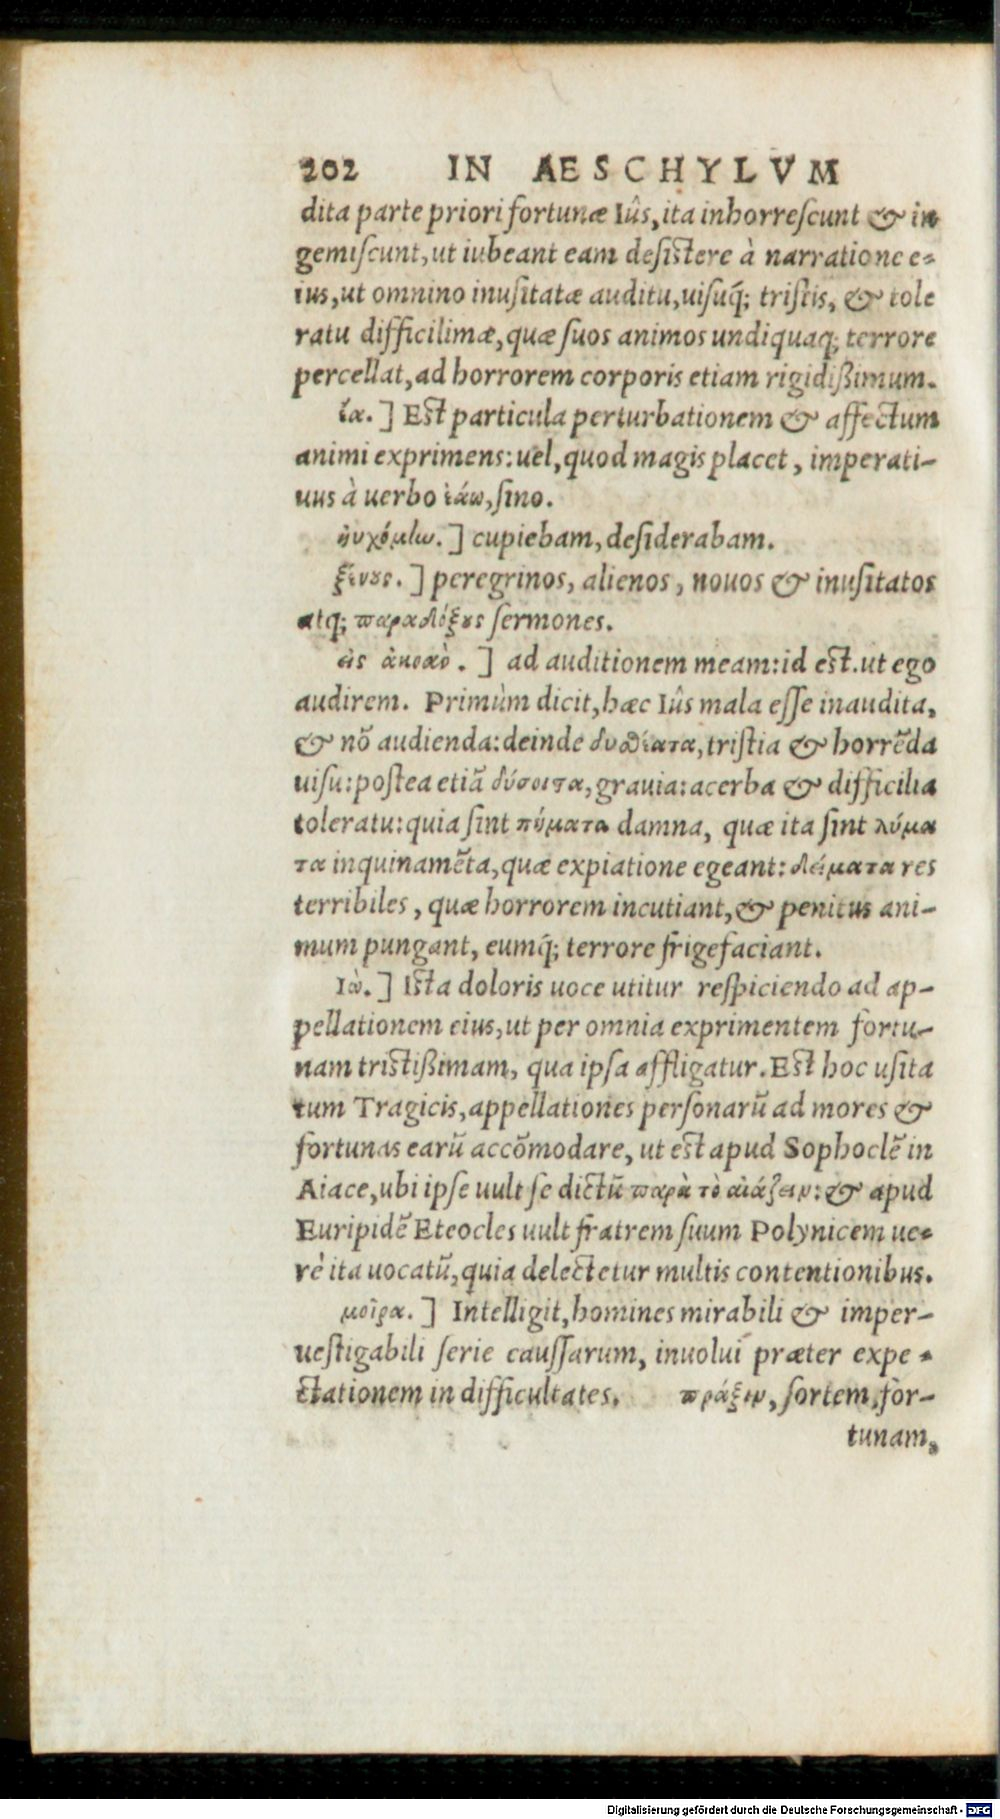 202 IN AESCHYLVM
dita parte priori fortunæ Iûs, ita inhorrescunt & in
gemiscunt, ut iubeant eam desistere à narratione e-
ius, ut omnino inusitatæ auditu, uisuq́; tristis, & tole
ratu difficilimæ, quæ suos animos undiquaq; terrore
percellat, ad horrorem corporis etiam rigidißimum.
ἔα.] Est particula perturbationem & affectum
animi exprimens: uel, quod magis placet, imperati-
uus à uerbo ἐάω, sino.
ηὐχόμην.] cupiebam, desiderabam.
ξένους.] peregrinos, alienos, nouos & inusitatos
atq; παραδόξους sermones.
εἰς ἀκοὰν.] ad auditionem meam: id est. ut ego
audirem. Primùm dicit, hæc Iûs mala esse inaudita,
& nō audienda: deinde δυσθέατα, tristia & horrēda
uisu: postea etiā δύσοιστα, grauia: acerba & difficilia
toleratu: quia sint πήματα damna, quæ ita sint λύμα
τα inquinamēta, quæ expiatione egeant: δείματα res
terribiles, quæ horrorem incutiant, & penitus ani-
mum pungant, eumq́; terrore frigefaciant.
Ἰὼ.] Ista doloris uoce utitur respiciendo ad ap-
pellationem eius, ut per omnia exprimentem fortu-
nam tristißimam, qua ipsa affligatur. Est hoc usita
tum Tragicis, appellationes personarū ad mores &
fortunas earū accōmodare, ut est apud Sophoclē in
Aiace, ubi ipse uult se dictū παρὰ τὸ αἰάζειν: & apud
Euripidē Eteocles uult fratrem suum Polynicem ue-
rè ita uocatū, quia delectetur multis contentionibus.
μοῖρα.] Intelligit, homines mirabili & imper-
uestigabili serie caussarum, inuolui præter expe-
ctationem in difficultates. πράξιν, sortem, for-
tunam,
Digitalisierung gefördert durch die Deutsche Forschungsgemeinschaft - DFG